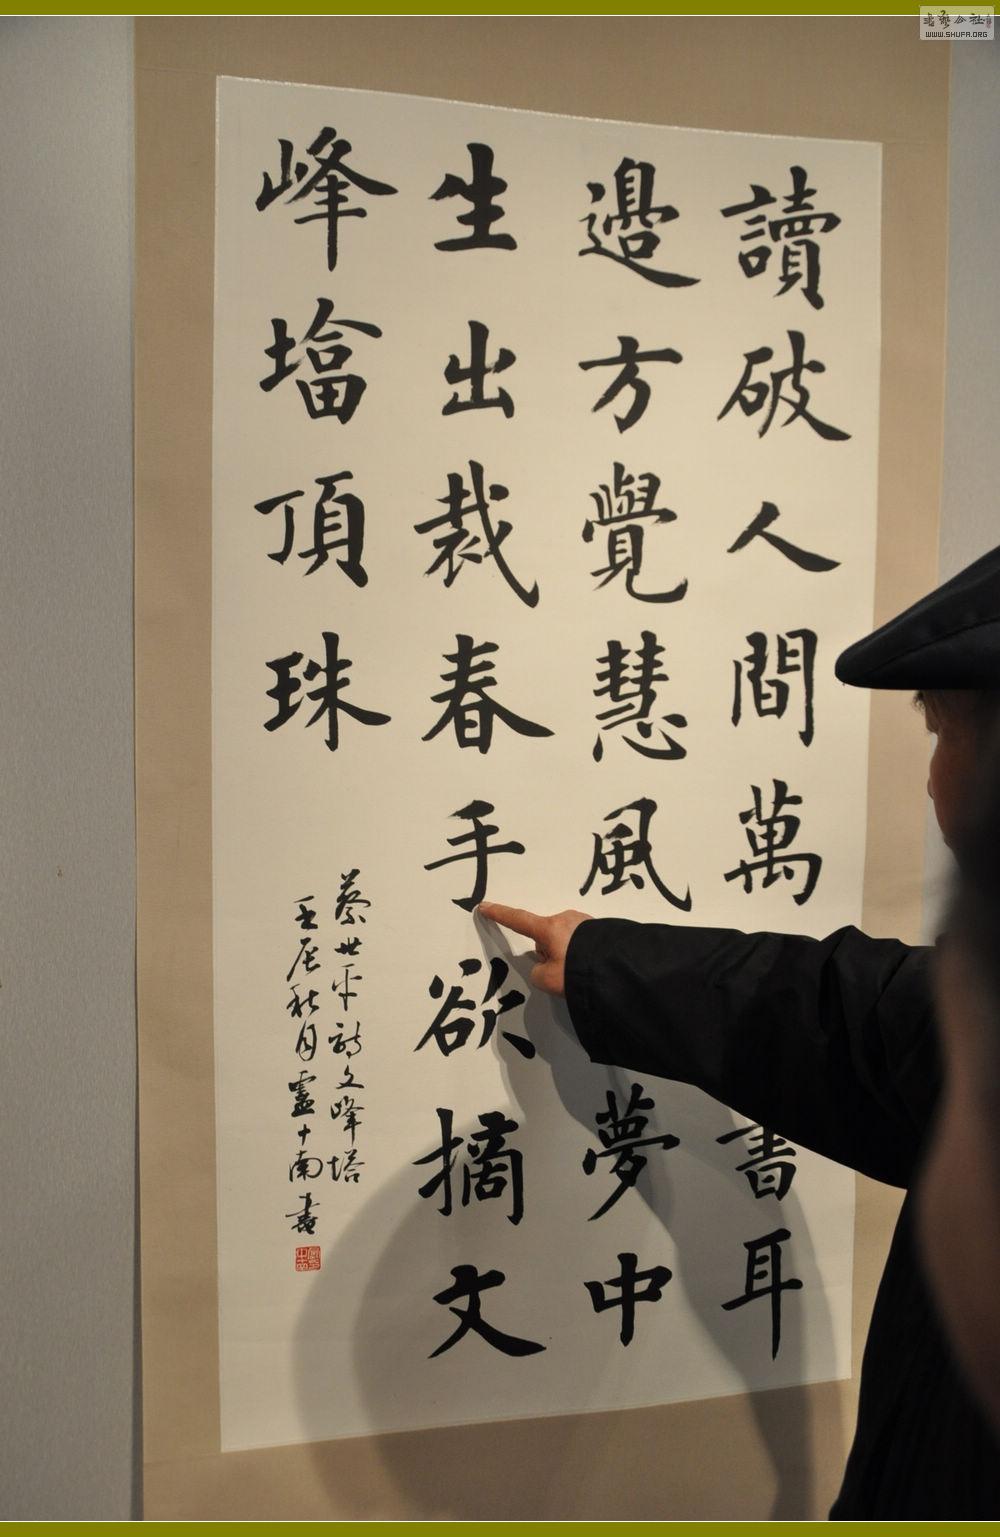 讀破人間萬書耳
邊方覺慧風夢中
生出裁春手欲摘文
峰墖頂珠
蔡世平詩文峰塔
壬辰秋月盧中南書
WWW.SHUFA.ORG